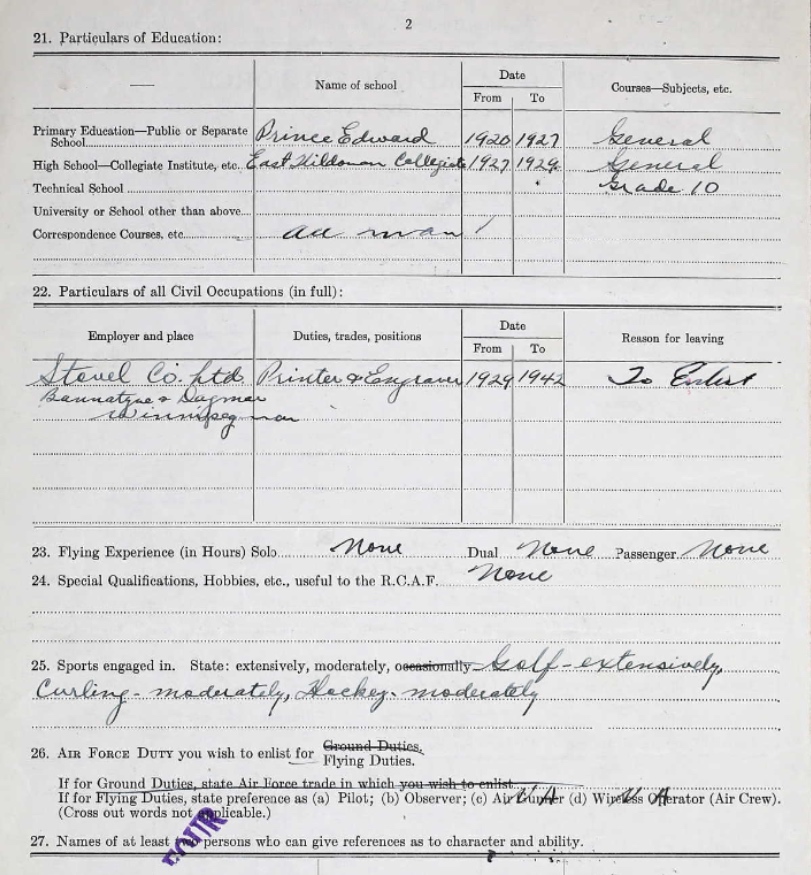 2
21. Particulars of Education:
Name of school
Date
Courses—Subjects, etc.
From To
Primary Education—Public or Separate School Prince Edward 1920 1927 General
High School—Collegiate Institute, etc. East Kildonan Collegiate 1927 1929 General
Technical School Grade 10
University or School other than above
Correspondence Courses, etc. all man
22. Particulars of all Civil Occupations (in full):
Employer and place
Duties, trades, positions
Date
Reason for leaving
From To
Stovel Co. Ltd. Printer & Engraver 1929 1942 To Enlist
Bannatyne & Dagmar
Winnipeg man
23. Flying Experience (in Hours) Solo None Dual None Passenger None
24. Special Qualifications, Hobbies, etc., useful to the R.C.A.F. None
25. Sports engaged in. State: extensively, moderately, occasionally Golf - extensively,
Curling - moderately, Hockey - moderately
26. AIR FORCE DUTY you wish to enlist for Ground Duties.
Flying Duties.
If for Ground Duties, state Air Force trade in which you wish to enlist
If for Flying Duties, state preference as (a) Pilot; (b) Observer; (c) Air Gunner (d) Wireless Operator (Air Crew).
(Cross out words not applicable.)
27. Names of at least two persons who can give references as to character and ability.